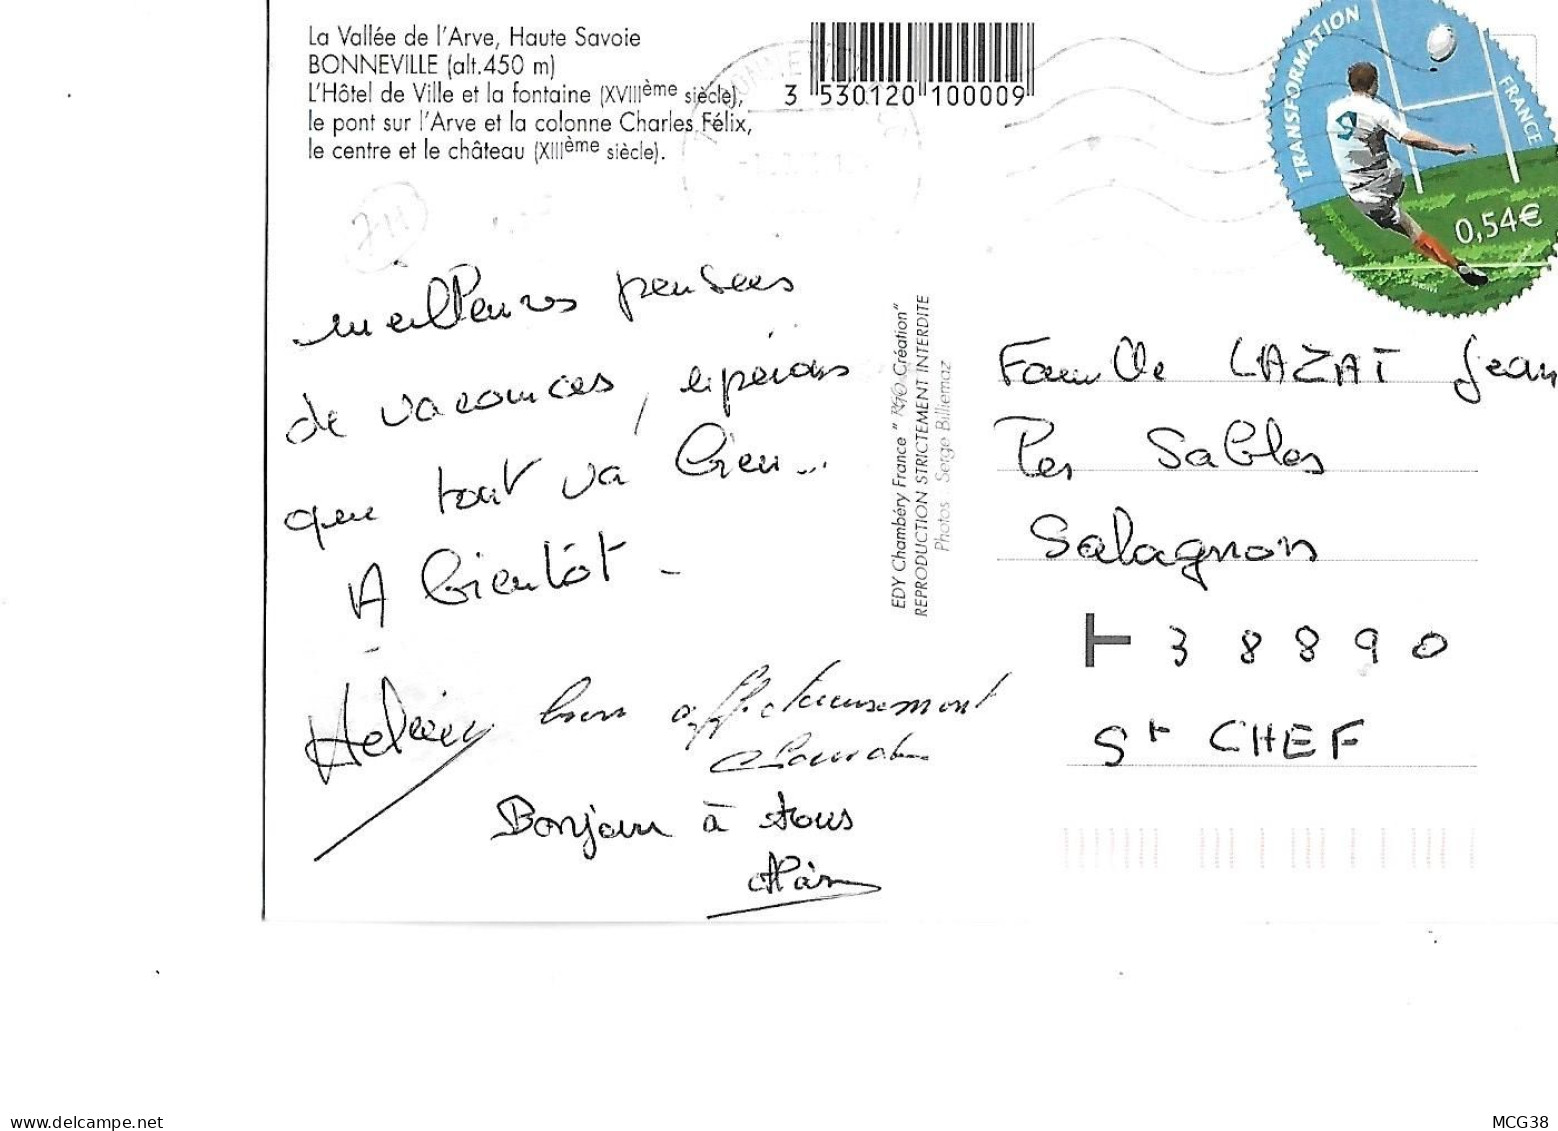 La Vallée de l'Arve, Haute Savoie
BONNEVILLE (alt.450 m)
L'Hôtel de Ville et la fontaine (XVIIIème siècle),
le pont sur l'Arve et la colonne Charles Félix,
le centre et le château (XIIIème siècle).
3 530120 100009
TRANSFORMATION
FRANCE
0,54€
meilleures pensées
de vacances, espérons
que tout va bien...
A bientôt -
bien affectueusement
Bonjour à tous
EDY Chambéry France " Création"
REPRODUCTION STRICTEMENT INTERDITE
Photos Serge Billiemaz
Famille LAZAT Jean
Les Sables
Salagnon
38890
St CHEF
www.delcampe.net
MCG38